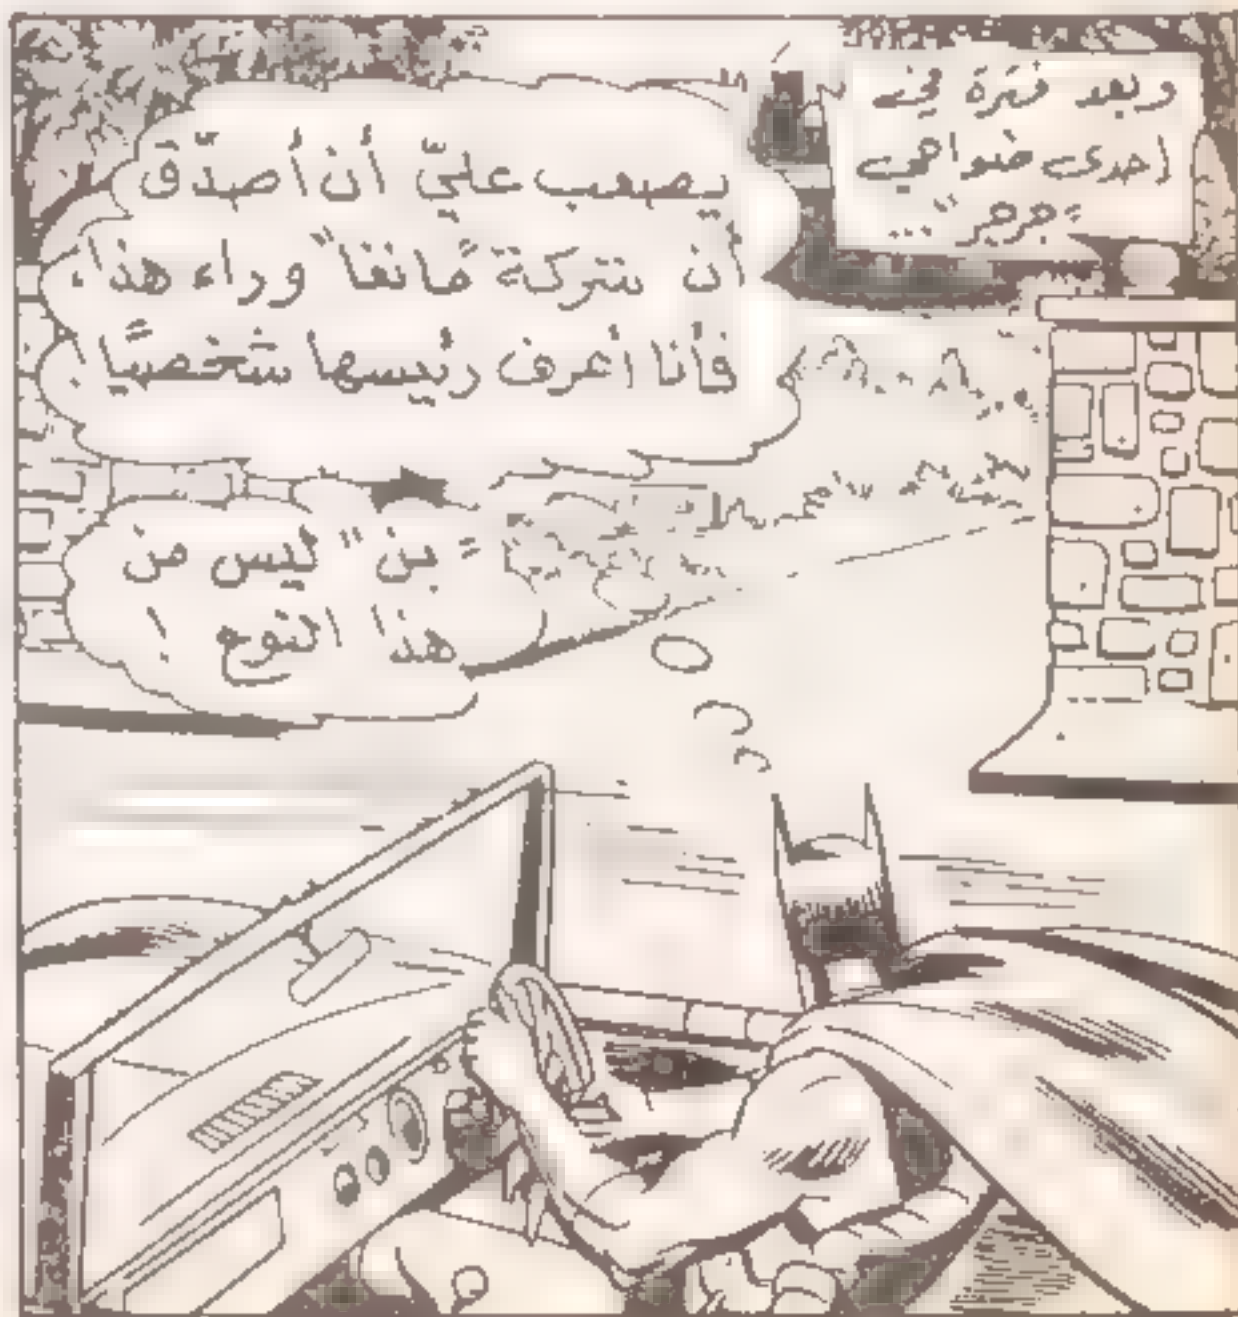 وبعد فترة في
احدى ضواهي
"جرجر"...
يصعب عليّ أن أصدّق
أن شركة "مانفا" وراء هذا،
فأنا أعرف رئيسها شخصيًا
"بن" ليس من
هذا النوع !